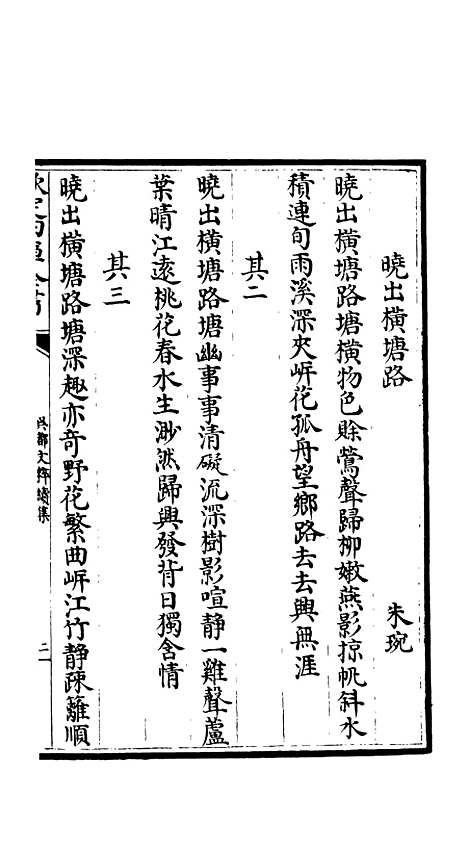 曉出橫塘路 朱琬
曉出橫塘路塘橫物色賖鶯聲歸柳嫩燕影掠帆斜水
積連旬雨溪深夾岸花孤舟望鄉路去去興無涯
其二
曉出橫塘路塘幽事事清礙流深樹影喧静一雞聲蘆
葉晴江逺桃花春水生渺然歸興發背日獨含情
其三
曉出橫塘路塘深趣亦奇野花繁曲岸江竹静疎籬順
欽定四庫全書
吳都文粹續集
二